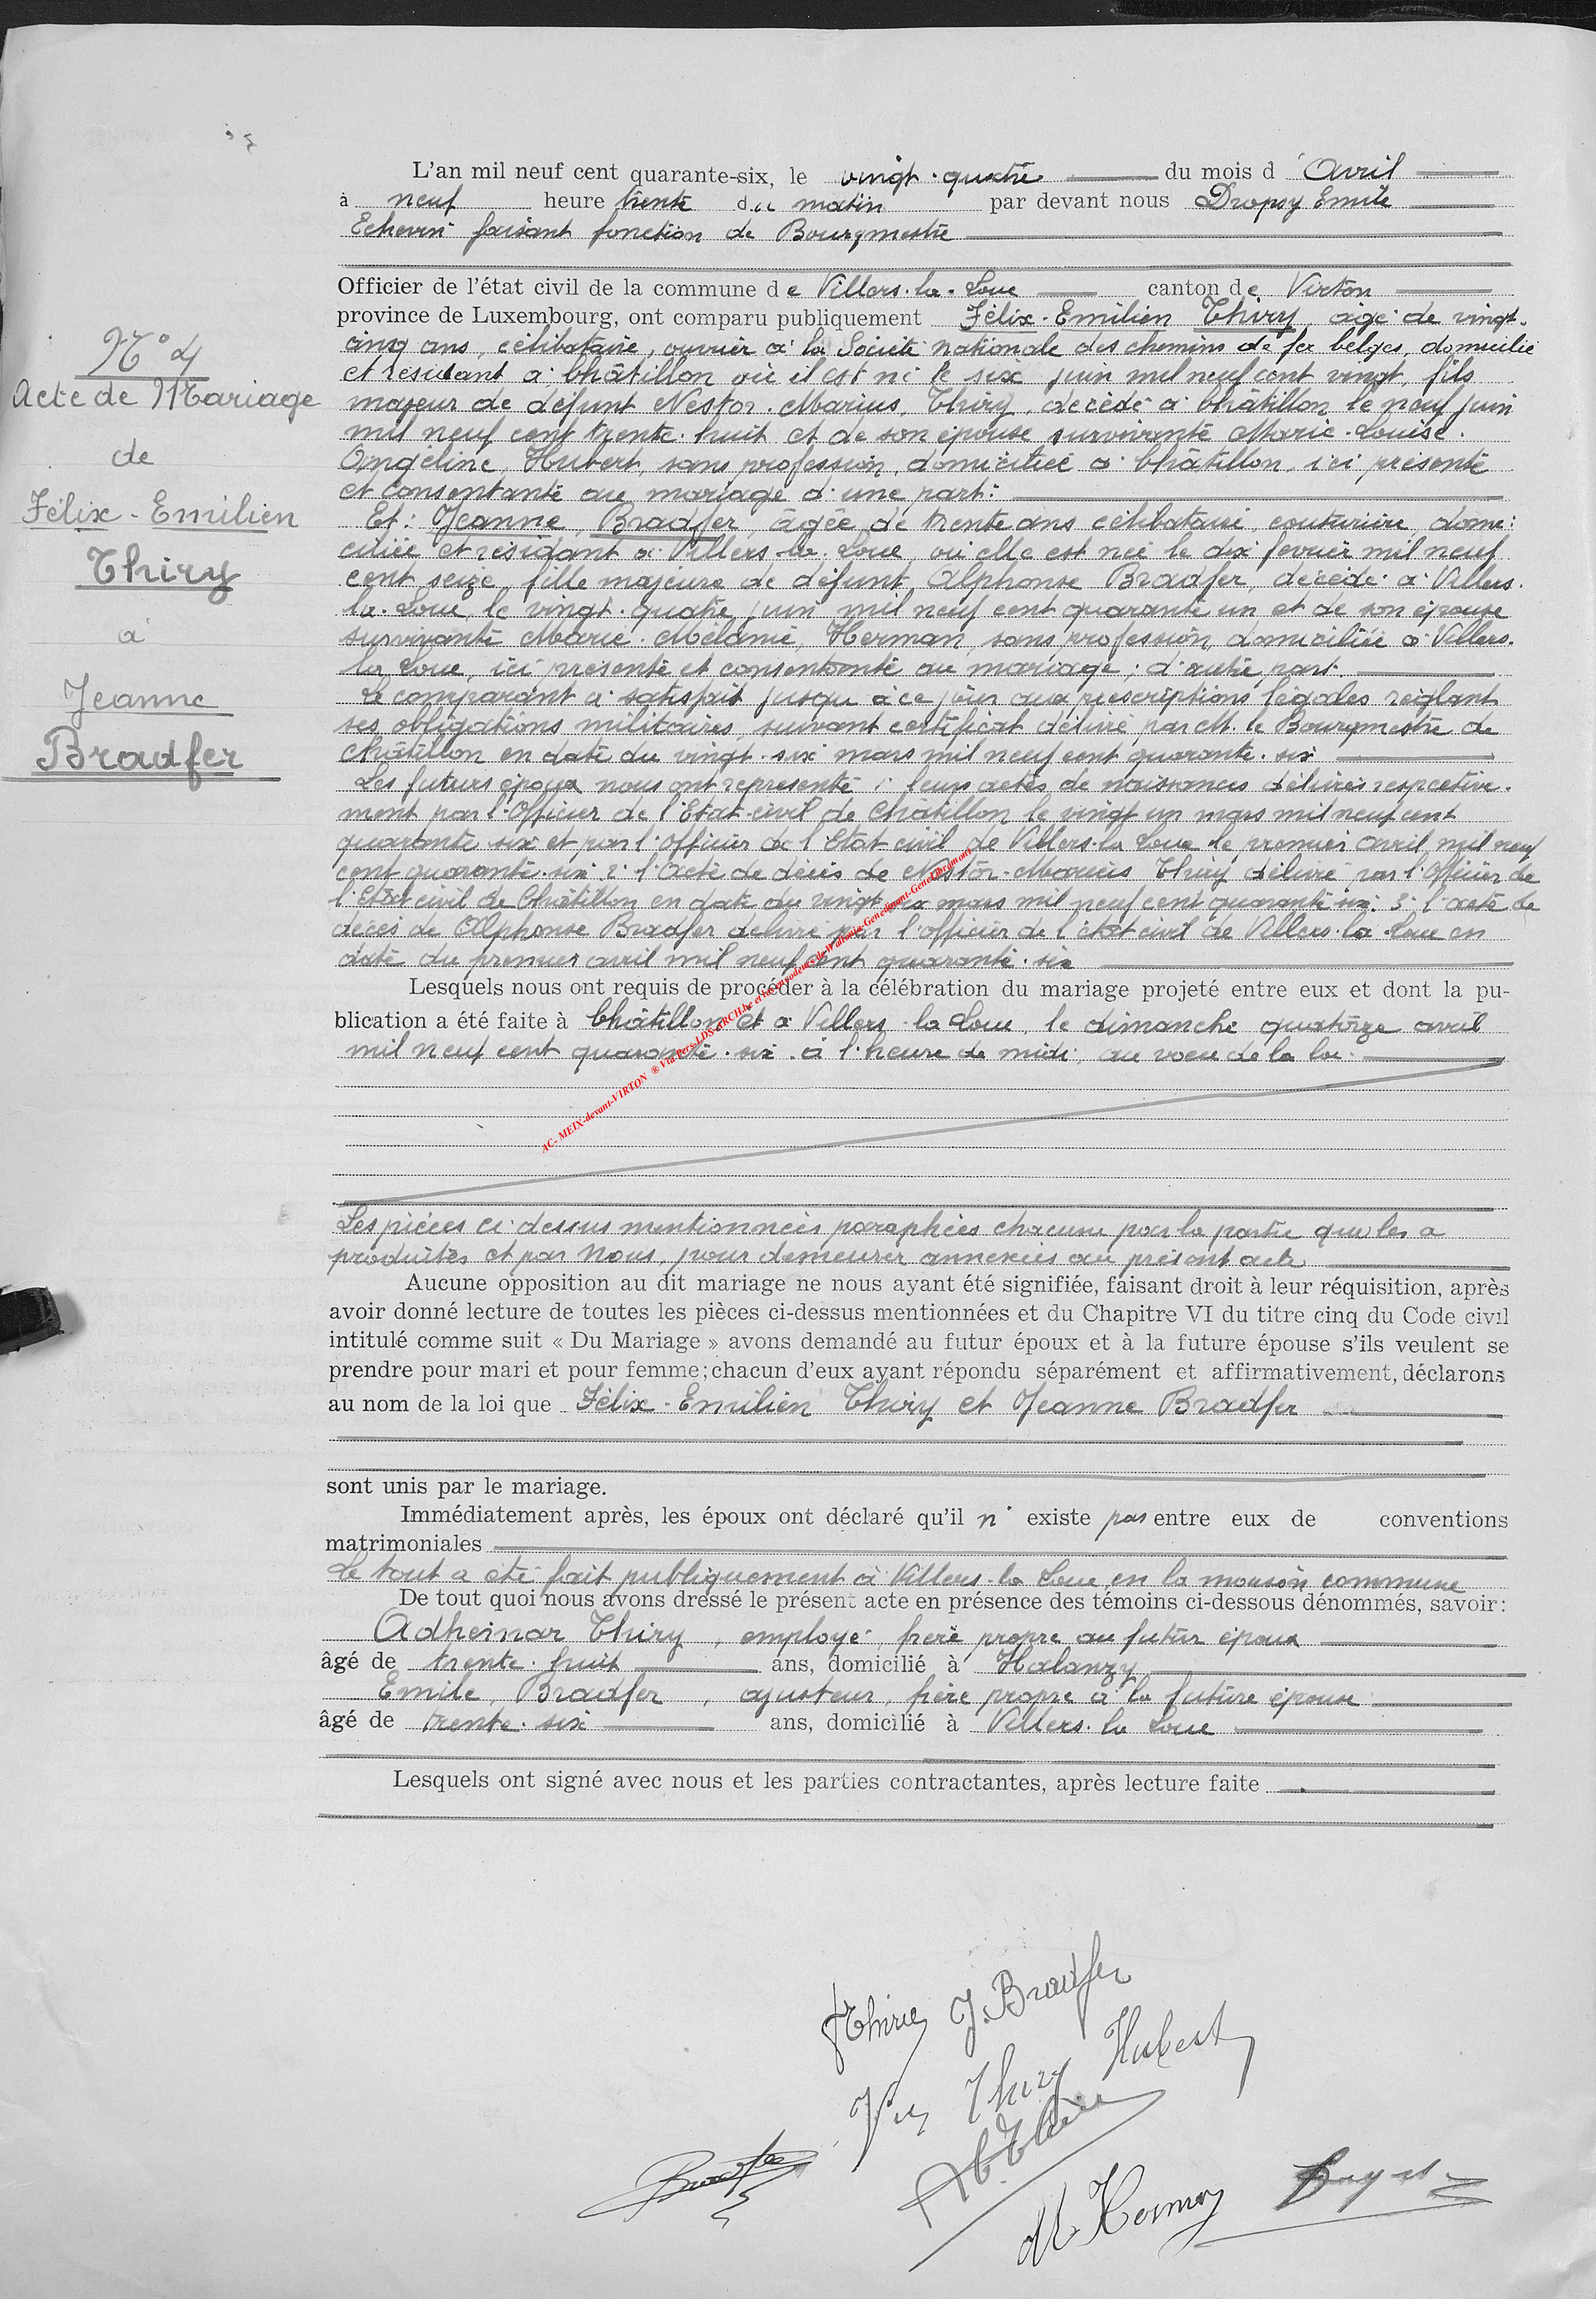 L'an mil neuf cent quarante-six, le vingt-quatre du mois d'Avril
à neuf heure trente du matin par devant nous Dropsy Emile
Echevin faisant fonction de Bourgmestre
Officier de l'état civil de la commune de Villers-la-Loue canton de Virton
province de Luxembourg, ont comparu publiquement Félix-Emilien Thiry, âgé de vingt-
N° 4
cinq ans, célibataire, ouvrier à la Société nationale des chemins de fer belges, domicilié
et résidant à Châtillon où il est né le six juin mil neuf cent vingt, fils
Acte de Mariage
majeur de défunt Nestor-Marius, Thiry, décédé à Châtillon le neuf juin
mil neuf cent trente-huit et de son épouse survivante Marie-Louise-
de
Angéline, Hubert, sans profession, domiciliée à Châtillon, ici présente
et consentante au mariage d'une part:
Félix-Emilien
Et: Jeanne, Bradfer, âgée de trente ans célibataire, couturière, domi:
ciliée et résidant à Villers-la-Loue, où elle est née le dix février mil neuf
Thiry
cent seize, fille majeure de défunt Alphonse Bradfer, décédé à Villers-
la-Loue, le vingt-quatre juin mil neuf cent quarante un et de son épouse
à
survivante Marie-Mélanie, Herman, sans profession, domiciliée à Villers-
la-Loue, ici présente et consentante au mariage; d'autre part.
Jeanne
Le comparant a satisfait jusqu'à ce jour aux prescriptions légales réglant
ses obligations militaires, suivant certificat délivré par M. le Bourgmestre de
Bradfer
Châtillon en date du vingt-six mars mil neuf cent quarante-six
Les futurs époux nous ont représenté: leurs actes de naissances délivrés respective-
ment par l'Officier de l'Etat-civil de Châtillon le vingt un mars mil neuf cent
quarante six et par l'officier de l'Etat civil de Villers-la-Loue le premier avril mil neuf
cent quarante-six 2: l'acte de décès de Nestor-Marius Thiry délivré par l'Officier de
l'Etat civil de Châtillon en date du vingt six mars mil neuf cent quarante six: 3: l'acte de
décès de Alphonse Bradfer délivré par l'officier de l'état civil de Villers-la-Loue en
date du premier avril mil neuf cent quarante-six
Lesquels nous ont requis de procéder à la célébration du mariage projeté entre eux et dont la pu-
blication a été faite à Châtillon et à Villers-la-Loue, le dimanche quatorze avril
mil neuf cent quarante-six à l'heure de midi, au voeu de la loi.
AC- MEIX-devant-VIRTON
Les pièces ci-dessus mentionnées paraphées chacune par la partie qui les a
produites et par Nous, pour demeurer annexées au présent acte
Aucune opposition au dit mariage ne nous ayant été signifiée, faisant droit à leur réquisition, après
avoir donné lecture de toutes les pièces ci-dessus mentionnées et du Chapitre VI du titre cinq du Code civil
intitulé comme suit « Du Mariage » avons demandé au futur époux et à la future épouse s'ils veulent se
prendre pour mari et pour femme; chacun d'eux ayant répondu séparément et affirmativement, déclarons
au nom de la loi que Félix-Emilien Thiry et Jeanne Bradfer
sont unis par le mariage.
Immédiatement après, les époux ont déclaré qu'il n' existe pas entre eux de conventions
matrimoniales
Le tout a été fait publiquement à Villers-la-Loue, en la maison commune
De tout quoi nous avons dressé le présent acte en présence des témoins ci-dessous dénommés, savoir:
Adhémar Thiry, employé, frère propre au futur époux
âgé de trente-huit ans, domicilié à Halanzy
Emile, Bradfer, ajusteur, frère propre à la future épouse
âgé de trente-six ans, domicilié à Villers-la-Loue
Lesquels ont signé avec nous et les parties contractantes, après lecture faite
Thiry J. Bradfer
Thiry Hubert
Bradfer